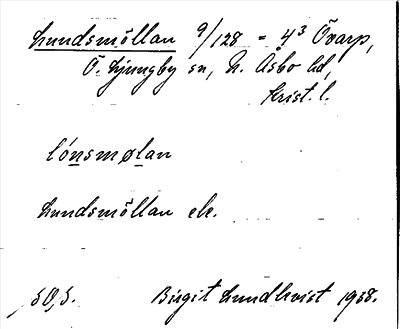 Lundsmöllan 9/128 = 4³ Övarp,
Ö. Ljungby sn, N. Åsbo hd,
Krist. l.
lónsmølan
Lundsmöllan ek.
50,5.
Birgit Lundkvist 1938.